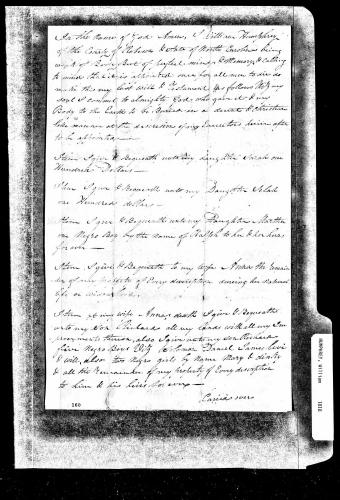 In the Name of God Amen, I William Humphrey
of the County of & State of North Carolina being
weak of Body But of perfect mind & Memory & calling
to mind that it is appointed once for all men to die do
make this my last will & Testament as follows
soul I commit to almighty God, who gave it & my
Body to the Earth to be Buried in a decent & Christian
like manner at the discretion of my Executors herein after
to be appointed
Item I give & Bequeath unto my daughter Sarah one
Hundred Dollars
Item I give & Bequeath unto my Daughter
one Hundred dollars
Item I give & Bequeath unto my Daughter Martha
one Negro Boy by the name of Ralph to her & her heirs
forever
Item I give & Bequeath to my wife Anna the Remain
der of my property of Every description during her natural
life or widowhood
Item at my wife Annas death I give & Bequeath
unto my son all my Lands with all my Im
provements thereon, also I give unto my son
five Negro Boys Daniel James
& will, also two Negro girls by Name Mary &
& all the Remainder of my property of Every description
to him & his heirs for ever
160
HUMPHREY, WILLIAM